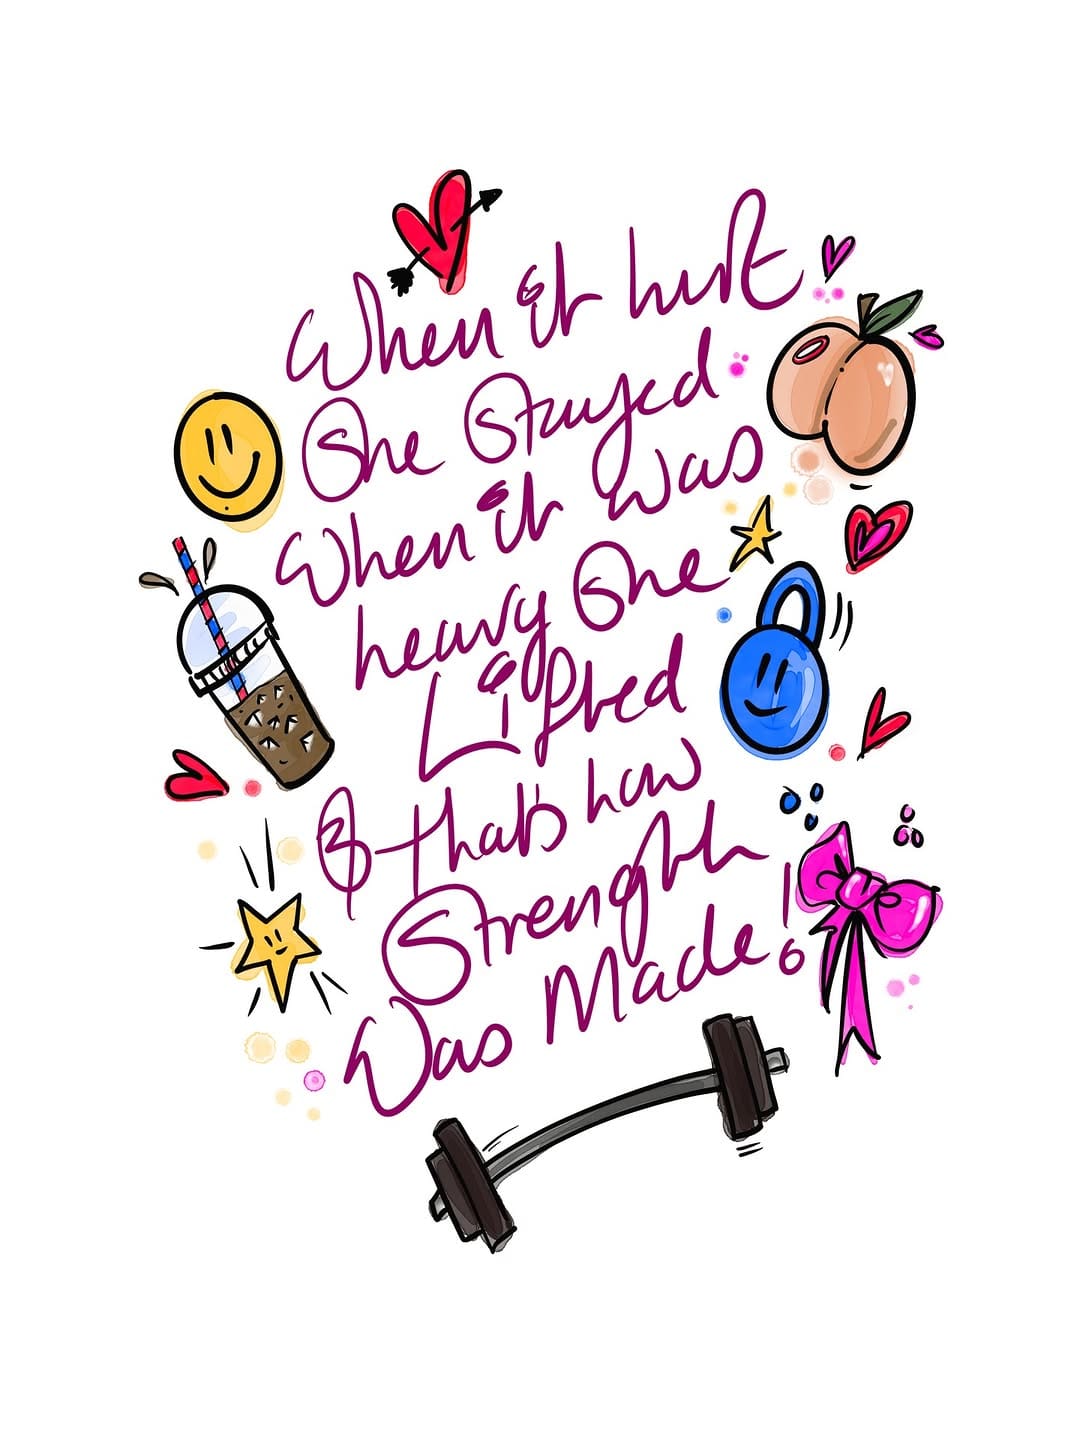 When it hurt
She Stayed
When it was
heavy She
Lifted
& that's how
Strength
Was Made!